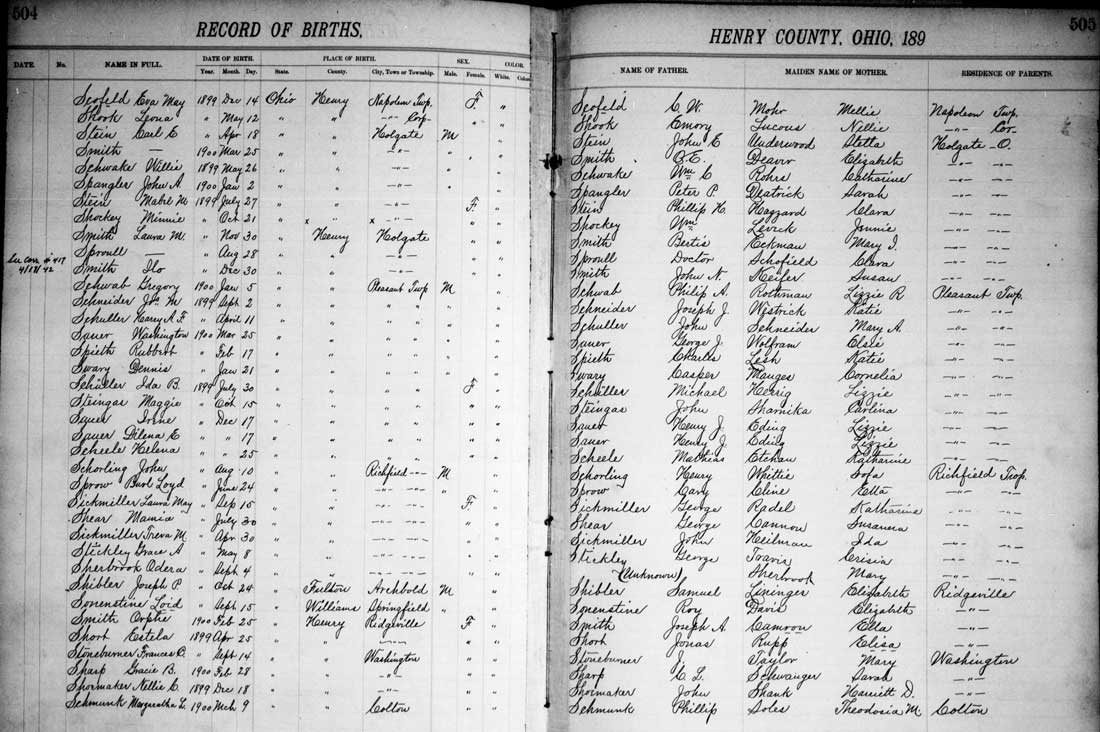 504
RECORD OF BIRTHS,
DATE. No. NAME IN FULL. DATE OF BIRTH. PLACE OF BIRTH. SEX. COLOR.
Year. Month. Day. State. County. City, Town or Township. Male. Female. White. Colored
Scofeld Eva May 1899 Dec 14 Ohio Henry Napoleon Twp. F. "
Shook Leona " May 12 " " -"- Corp- " "
Stein Carl E " Apr 18 " " Holgate M "
Smith — 1900 Mar 25 " " -"- " "
Schwake Willie 1899 May 26 " " -"- " "
Spangler John A. 1900 Jan 2 " " -"- " "
Stein Mabel M. 1899 July 27 " " -"- F. "
Shockey Minnie " Oct 21 " x x -"- " "
Smith Laura M. " Nov 30 " Henry Holgate " "
Sproull — " Aug 28 " " -"- " "
See corr # 417
4/17/42
Smith Ilo " Dec 30 " " -"- " "
Schwab Gregory 1900 Jan 5 " " Pleasant Twp M "
Schneider Jos M 1899 Sept 2 " " " " "
Schuller Harry A.F. " April 11 " " " " "
Sauer Washington 1900 Mar 25 " " " " "
Spieth Rubbert " Feb 17 " " " " "
Swary Dennis " Jan 21 " " " " "
Schuller Ida B. 1899 July 30 " " " F "
Steingas Maggie " Oct 15 " " " " "
Sauer Irene " Dec 17 " " " " "
Sauer Dilena C " " 17 " " " " "
Scheele Helena " " 25 " " " " "
Schorling John " Aug 10 " " Richfield --- M "
Sprow Burl Loyd " June 24 " " -"-"- " "
Sickmiller Laura May " Sep 15 " " -"-"- F. "
Shear Mamie " July 30 " " -"-"- " "
Sickmiller Treva M. " Apr 30 " " -"-"- " "
Stickley Grace A " May 8 " " -"-"- " "
Sherbrook Odera " Sept 4 " " -"-"- " "
Shibler Joseph P. " Oct 24 " Fulton Archbold M "
Sonenstine Loid " Sept 15 " Williams Springfield " "
Smith Orpha 1900 Feb 25 " Henry Ridgeville F "
Short Estela 1899 Apr 25 " " -"-"- " "
Stoneburner Frances C. " Sept 14 " " Washington " "
Sharp Gracie B. 1900 Feb 28 " " -"- " "
Shoemaker Nellie C. 1899 Dec 18 " " -"- " "
Schmunk Margueatha L. 1900 Mch 9 " " Colton " "
505
HENRY COUNTY, OHIO, 189
NAME OF FATHER. MAIDEN NAME OF MOTHER. RESIDENCE OF PARENTS.
Scofeld C. W. Mohr Mellie Napoleon Twp.
Shook Emory Lucous Nellie -"- Cor.
Stein John E Underwood Stella Holgate - O.
Smith B.E. Deavir Elizabeth -"- -"-
Schwake Wm C Rohrs Catharine -"- -"-
Spangler Peter P Deatrick Sarah -"- -"-
Stein Phillip H. Haggard Clara -"- -"-
Shockey Wm Levick Jennie -"- -"-
Smith Bertis Eckman Mary I. -"- -"-
Sproull Doctor Schofield Clara -"- -"-
Smith John N. Keifer Susan -"- -"-
Schwab Philip A. Rothman Lizzie R Pleasant Twp.
Schneider Joseph J. Westrick Katie -"- -"-
Schuller John Schneider Mary A. -"- -"-
Sauer George J. Wolfram Elsie -"- -"-
Spieth Charles Lesh Katie -"- -"-
Swary Casper Mauges Cornelia -"- -"-
Schuller Michael Herrig Lizzie -"- -"-
Steingas John Sharnika Carlina -"- -"-
Sauer Henry J. Eding Lizzie -"- -"-
Sauer Henry J. Eding Lizzie -"- -"-
Scheele Mathias Etchen Katharine -"- -"-
Schorling Henry Whittie Sofa Richfield Twp.
Sprow Gary Cline Etta -"- -"-
Sickmiller George Radel Katharina -"- -"-
Shear George Cannon Susanna -"- -"-
Sickmiller John Heilman Ida -"- -"-
Stickley George Travis Crisia -"- -"-
(Unknown) Sherbrook Mary -"- -"-
Shibler Samuel Lininger Elizabeth Ridgeville
Sonenstine Roy Davis Elizabeth -"-
Smith Joseph A. Camron Ella -"-
Short Jonas Rupp Elisa -"-
Stoneburner Taylor Mary Washington
Sharp C. L. Schwanger Sarah -"-
Shoemaker John Shank Harriett D. -"-
Schmunk Phillip Soles Theodosia M. Colton